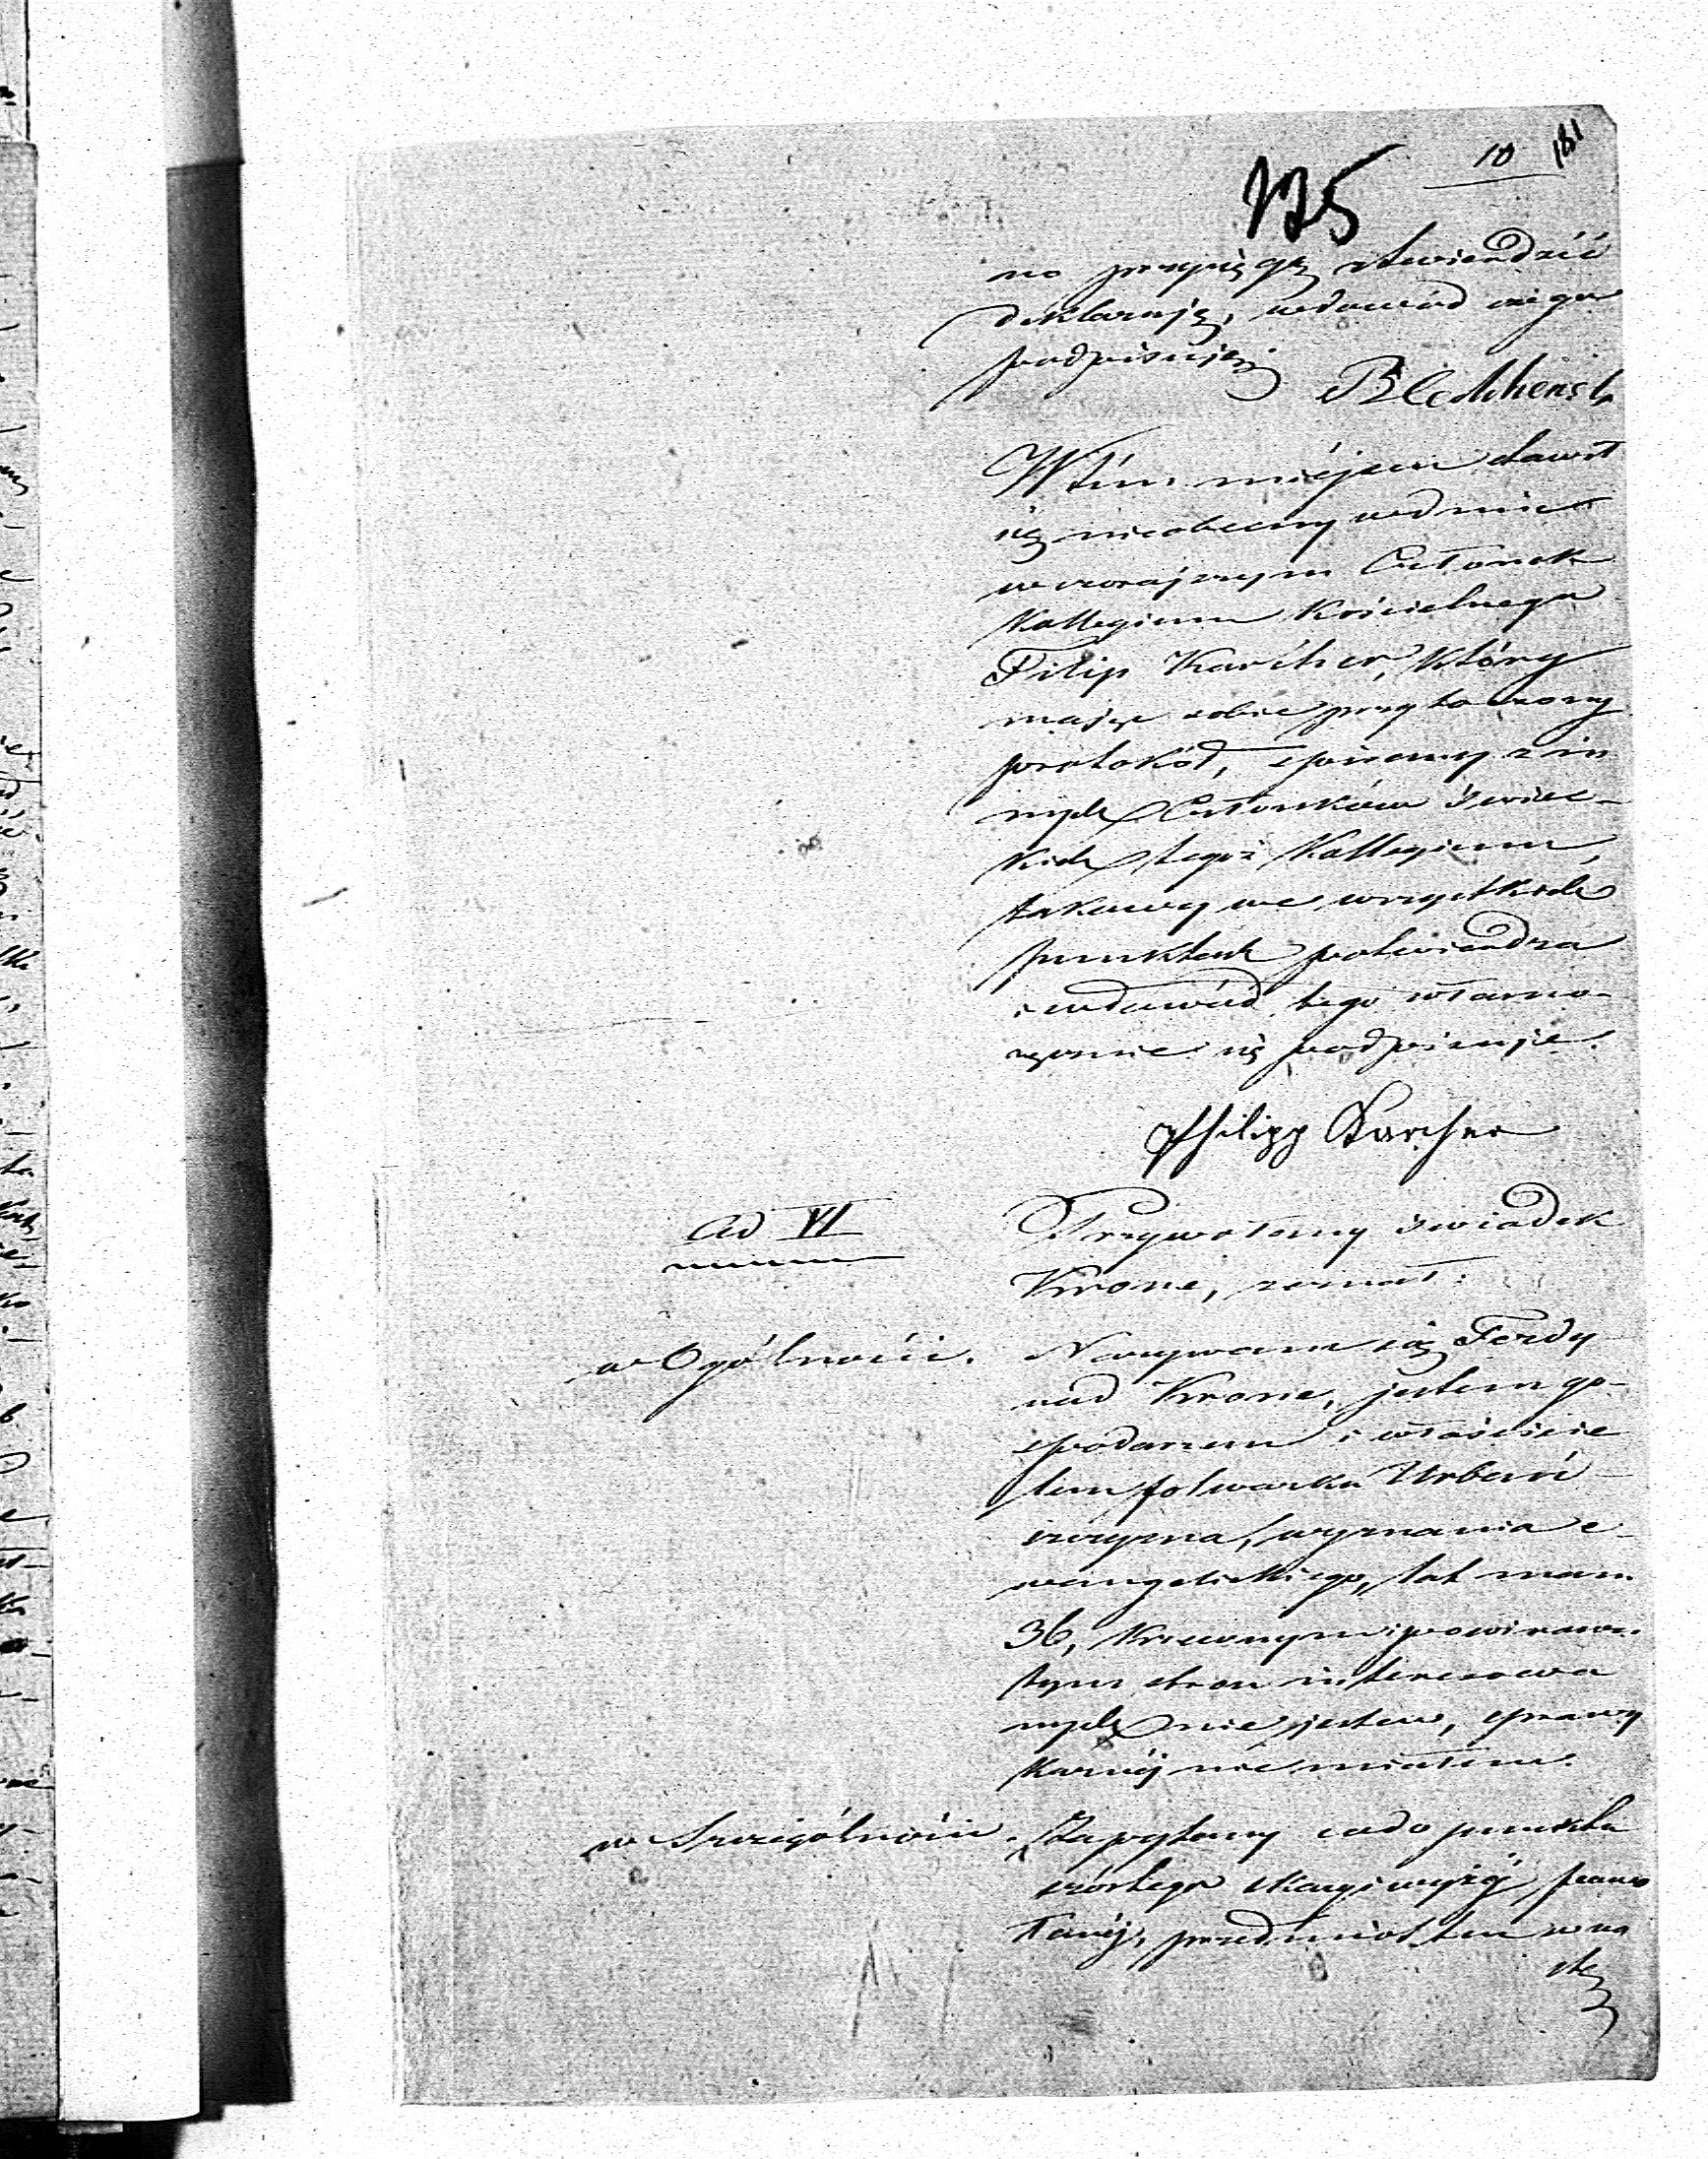 10 181
125
no przysięgą stwierdzić
deklaruję, wdowód czego
podpisuję.
W tém miéjscu stawił
się nieobecny wdniu
wczorajszym Członek
Kollegium Kościelnego
Filip Karcher, który
mając sobie przytoczony
protokół, spisany z in
nych Członków świec-
kich tegoż Kollegium,
takowy we wszystkich
punktach potwierdza
i wdowód tego własno-
ręcznie się podpisuje.
Philipp Karcher
Ad VI
Przywołany świadek
Krone, zeznał:
w Ogólności.
Nazywam się Ferdy
nad Krone, jestem go-
spodarzem i właścicie
lem folwarku Urbań-
szczyzna, wyznania e-
wangelickiego, lat mam
36, Krewnym i powinowa-
tym stron interesowa
nych nie jestem, sprawy
karnéj nie miałem.
w Szczególności.
Zapytany codo punktu
szóstego skargi wyżéj powo
łanéj, przedmiotem w no